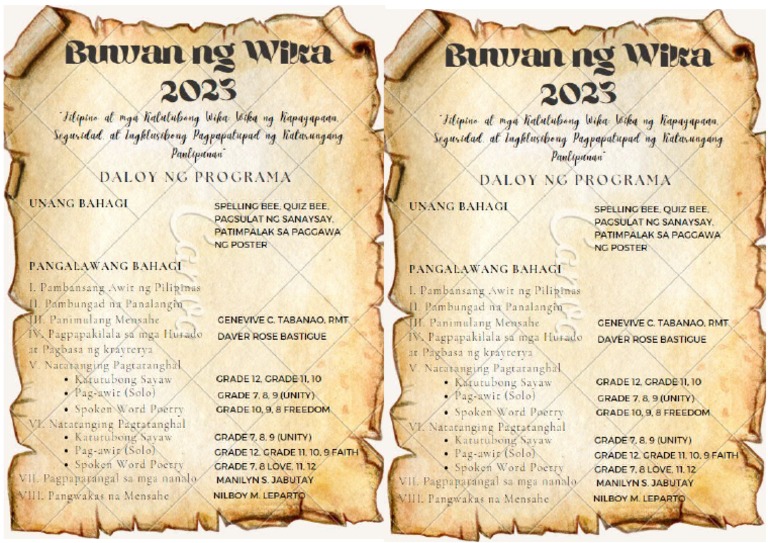 Buwan ng Wika
2023
"Filipino at mga Katutubong Wika: Wika ng Kapayapaan,
Seguridad, at Ingklusibong Pagpapatupad ng Katarungang
Panlipunan"
DALOY NG PROGRAMA
UNANG BAHAGI
SPELLING BEE, QUIZ BEE,
PAGSULAT NG SANAYSAY,
PATIMPALAK SA PAGGAWA
NG POSTER
PANGALAWANG BAHAGI
I. Pambansang Awit ng Pilipinas
II. Pambungad na Panalangin
III. Panimulang Mensahe GENEVIVE C. TABANAO, RMT
IV. Pagpapakilala sa mga Hurado DAVER ROSE BASTIGUE
at Pagbasa ng krayterya
V. Natatanging Pagtatanghal
• Katutubong Sayaw GRADE 12, GRADE 11, 10
• Pag-awit (Solo) GRADE 7, 8, 9 (UNITY)
• Spoken Word Poetry GRADE 10, 9, 8 FREEDOM
VI. Natatanging Pagtatanghal
• Katutubong Sayaw GRADE 7, 8, 9 (UNITY)
• Pag-awit (Solo) GRADE 12, GRADE 11, 10, 9 FAITH
• Spoken Word Poetry GRADE 7, 8 LOVE, 11, 12
VII. Pagpaparangal sa mga nanalo MANILYN S. JABUTAY
VIII. Pangwakas na Mensahe NILBOY M. LEPARTO
Canva
Buwan ng Wika
2023
"Filipino at mga Katutubong Wika: Wika ng Kapayapaan,
Seguridad, at Ingklusibong Pagpapatupad ng Katarungang
Panlipunan"
DALOY NG PROGRAMA
UNANG BAHAGI
SPELLING BEE, QUIZ BEE,
PAGSULAT NG SANAYSAY,
PATIMPALAK SA PAGGAWA
NG POSTER
PANGALAWANG BAHAGI
I. Pambansang Awit ng Pilipinas
II. Pambungad na Panalangin
III. Panimulang Mensahe GENEVIVE C. TABANAO, RMT
IV. Pagpapakilala sa mga Hurado DAVER ROSE BASTIGUE
at Pagbasa ng krayterya
V. Natatanging Pagtatanghal
• Katutubong Sayaw GRADE 12, GRADE 11, 10
• Pag-awit (Solo) GRADE 7, 8, 9 (UNITY)
• Spoken Word Poetry GRADE 10, 9, 8 FREEDOM
VI. Natatanging Pagtatanghal
• Katutubong Sayaw GRADE 7, 8, 9 (UNITY)
• Pag-awit (Solo) GRADE 12, GRADE 11, 10, 9 FAITH
• Spoken Word Poetry GRADE 7, 8 LOVE, 11, 12
VII. Pagpaparangal sa mga nanalo MANILYN S. JABUTAY
VIII. Pangwakas na Mensahe NILBOY M. LEPARTO
Canva